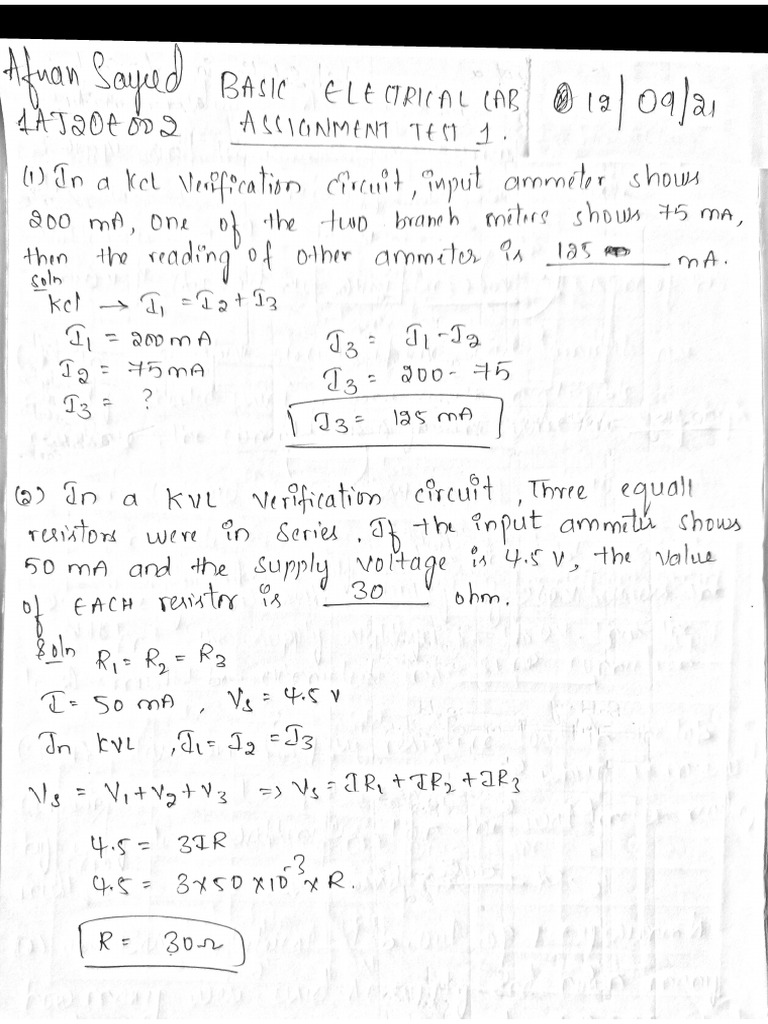 Afnan Sayeed BASIC ELECTRICAL LAB 12/09/21
1AJ20EE002 ASSIGNMENT TEST 1.
(1) In a Kcl Verification circuit, input ammeter shows
200 mA, One of the two branch meters shows 75 mA,
then the reading of other ammeter is 125 mA.
Soln
Kcl → I1 = I2 + I3
I1 = 200mA I3 = I1 - I2
I2 = 75mA I3 = 200 - 75
I3 = ? I3 = 125 mA
(2) In a KVL verification circuit, Three equall
resistors were in series. If the input ammeter shows
50 mA and the supply voltage is 4.5 V, the value
of EACH resistor is 30 ohm.
Soln R1 = R2 = R3
I = 50 mA, Vs = 4.5 V
In KVL, I1 = I2 = I3
Vs = V1 + V2 + V3 => Vs = IR1 + IR2 + IR3
4.5 = 3IR
4.5 = 3×50×10⁻³×R.
R = 30Ω